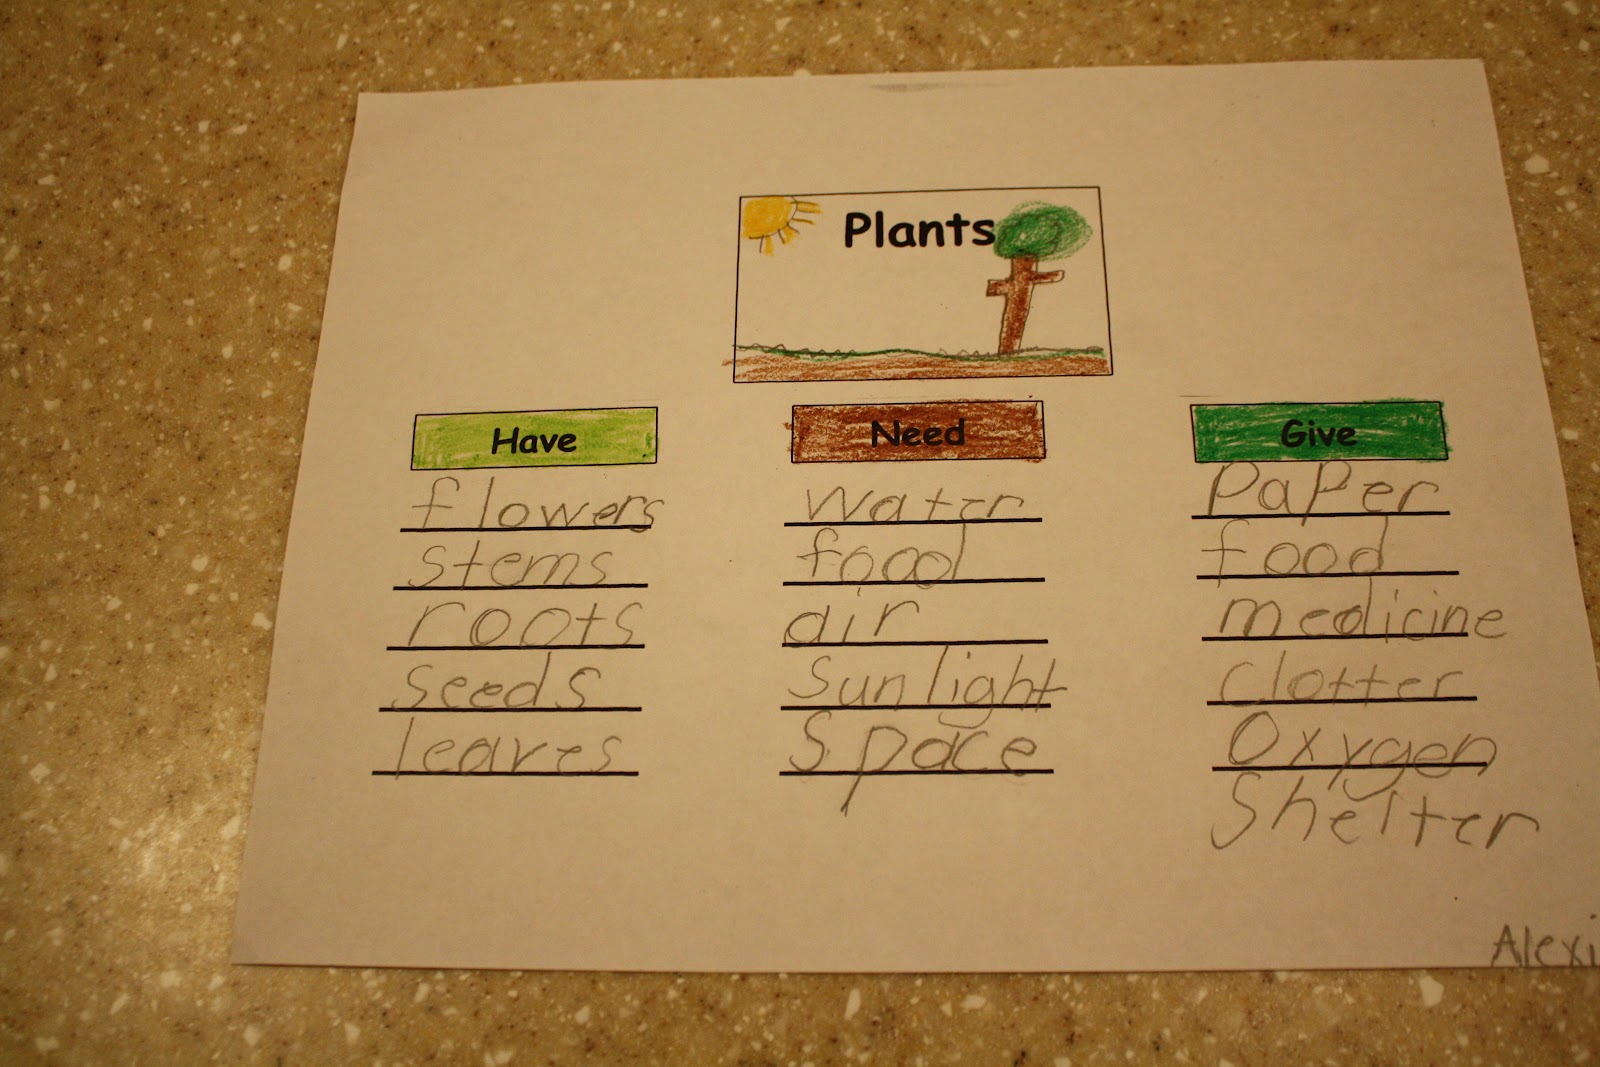 Plants
Have
flowers
stems
roots
seeds
leaves
Need
water
food
air
Sunlight
Space
Give
PaPer
food
medicine
clotter
Oxygen
Shelter
Alexi